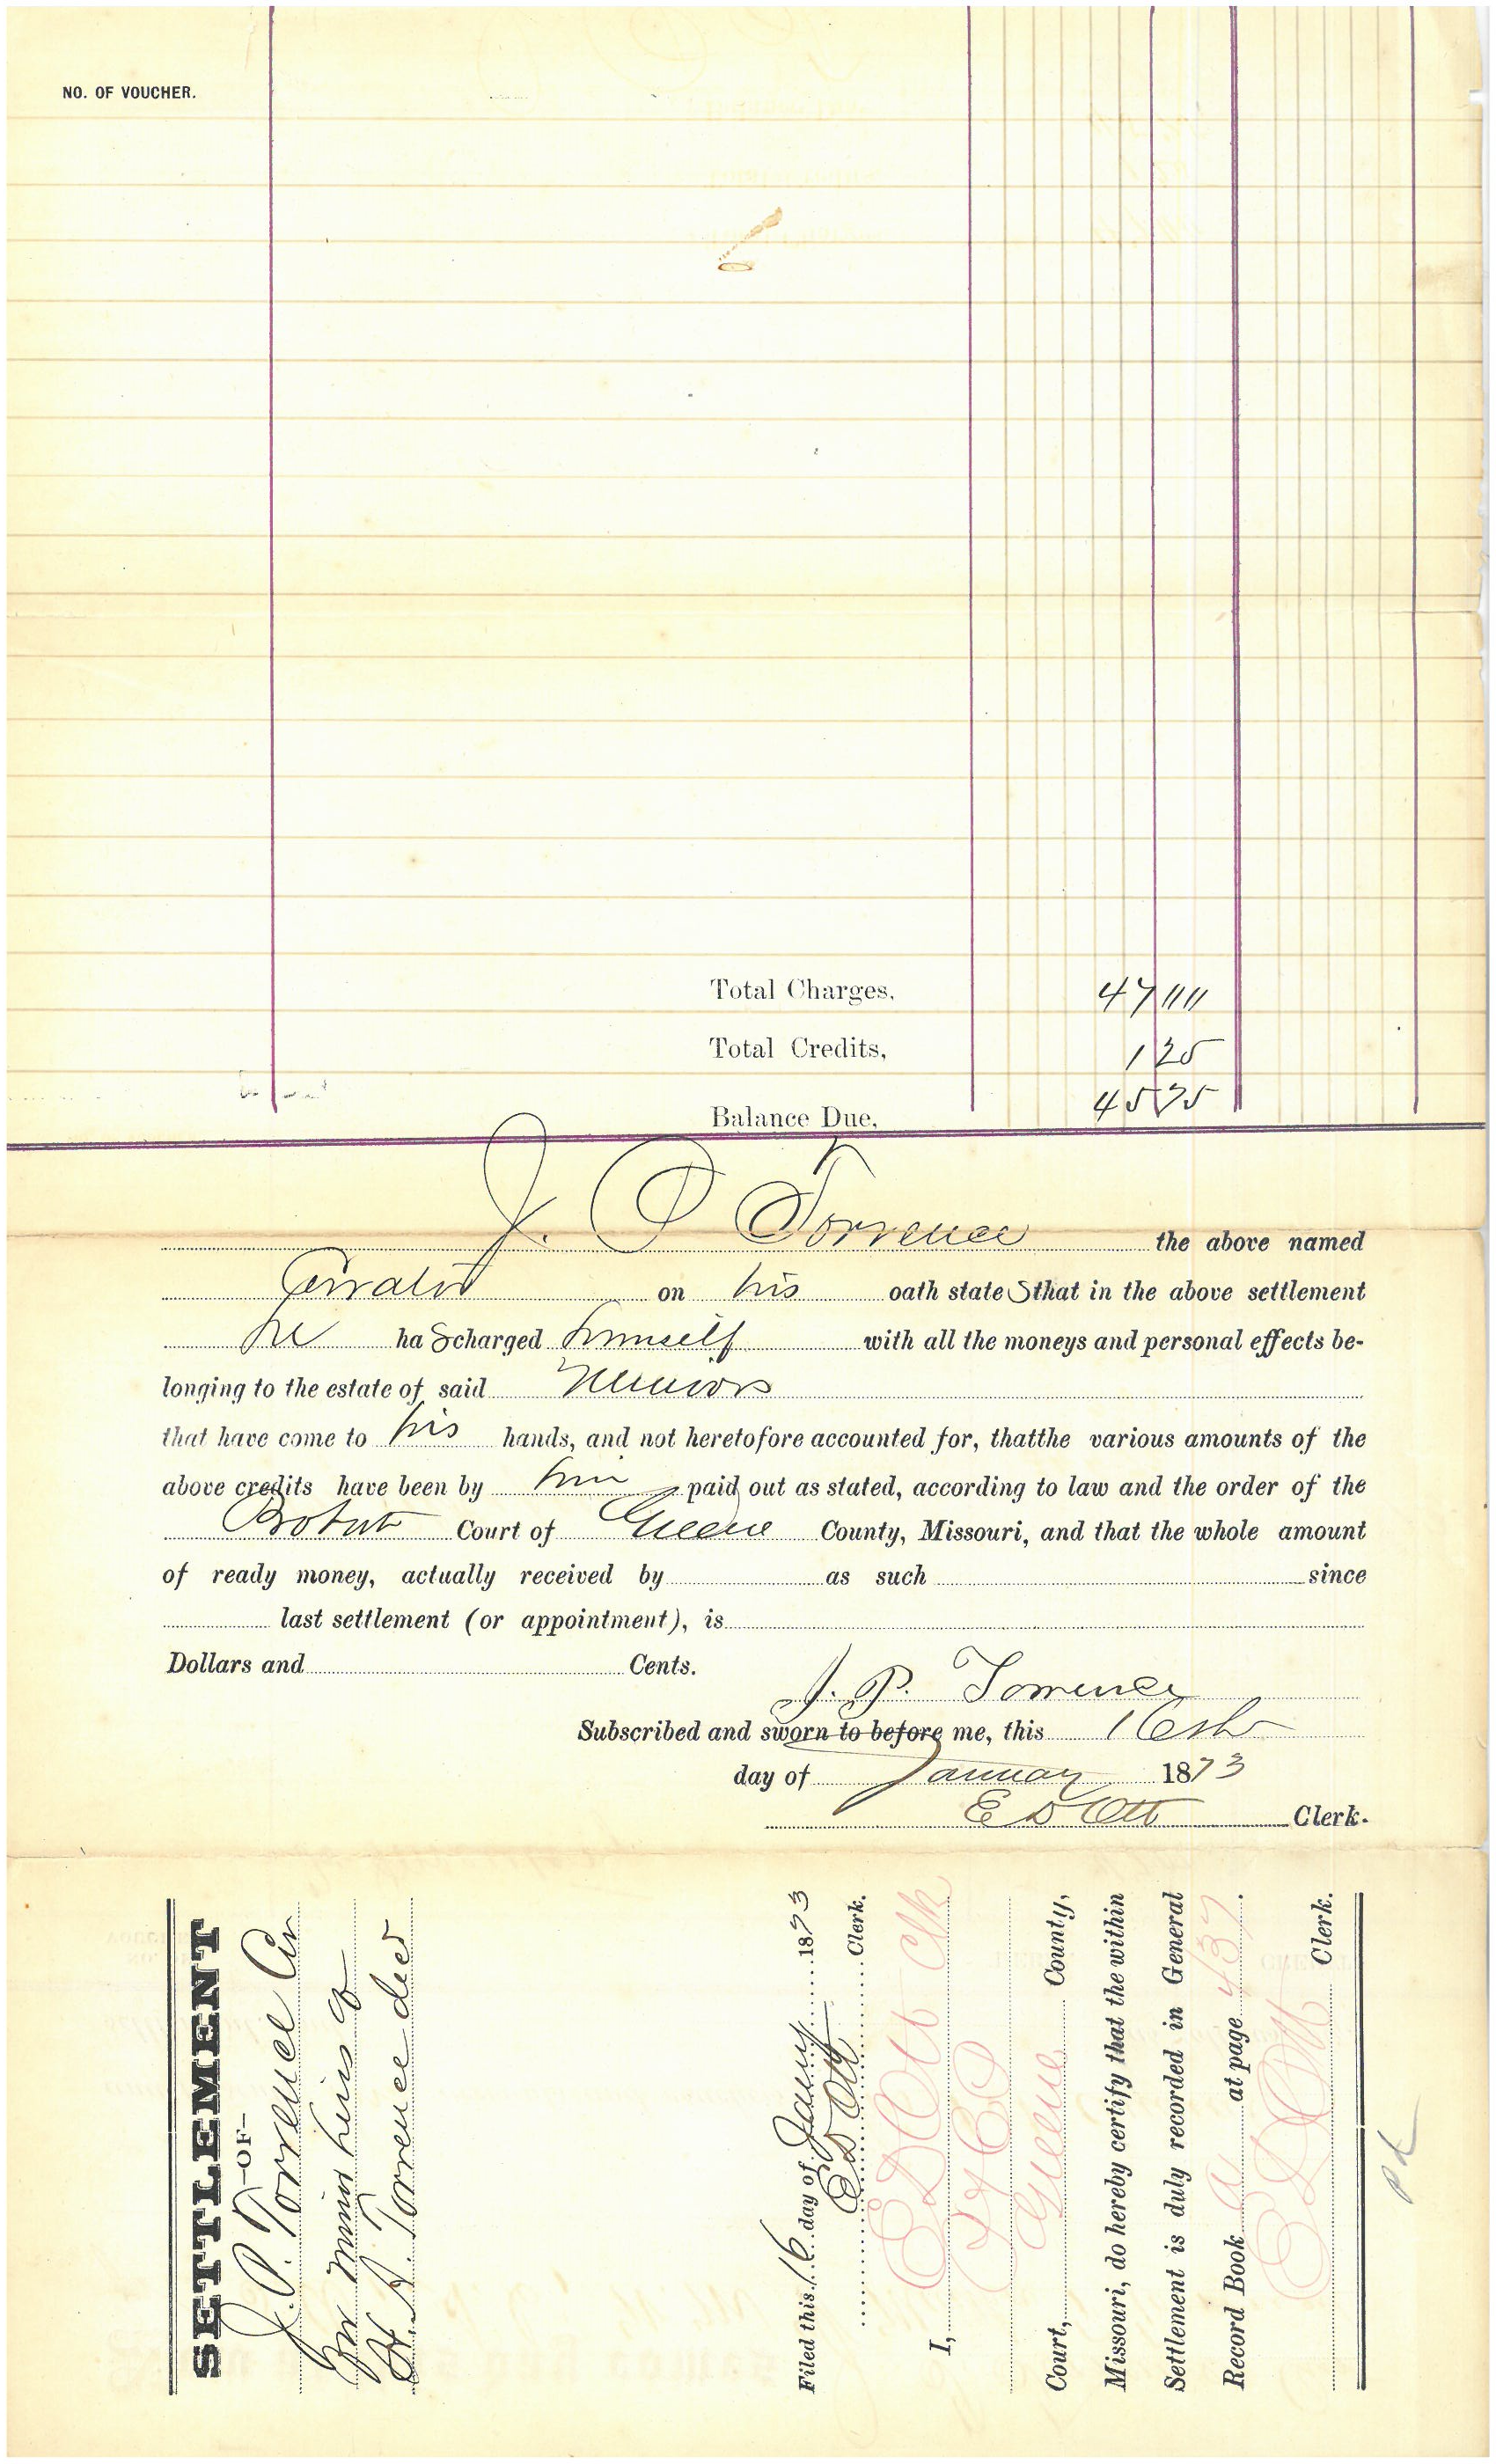 NO. OF VOUCHER.
Total Charges, 47 00
Total Credits, 1 25
Balance Due, 45 75
J. P. Torrence the above named
Curator on his oath states that in the above settlement
he has charged himself with all the moneys and personal effects be-
longing to the estate of said Minors
that have come to his hands, and not heretofore accounted for, thatthe various amounts of the
above credits have been by him paid out as stated, according to law and the order of the
Probate Court of Greene County, Missouri, and that the whole amount
of ready money, actually received by as such since
last settlement (or appointment), is
Dollars and Cents.
J. P. Torrence
Subscribed and sworn to before me, this 16th
day of January 1873
E D Ott Clerk.
SETTLEMENT
-OF-
J. P. Torrence Cur
for minor heirs of
H. A. Torrence decd
Filed this 16 day of Jany 1873
E D Ott Clerk.
I, E D Ott Clk
Court, Greene County,
Missouri, do hereby certify that the within
Settlement is duly recorded in General
Record Book A at page 437.
E D Ott Clerk.